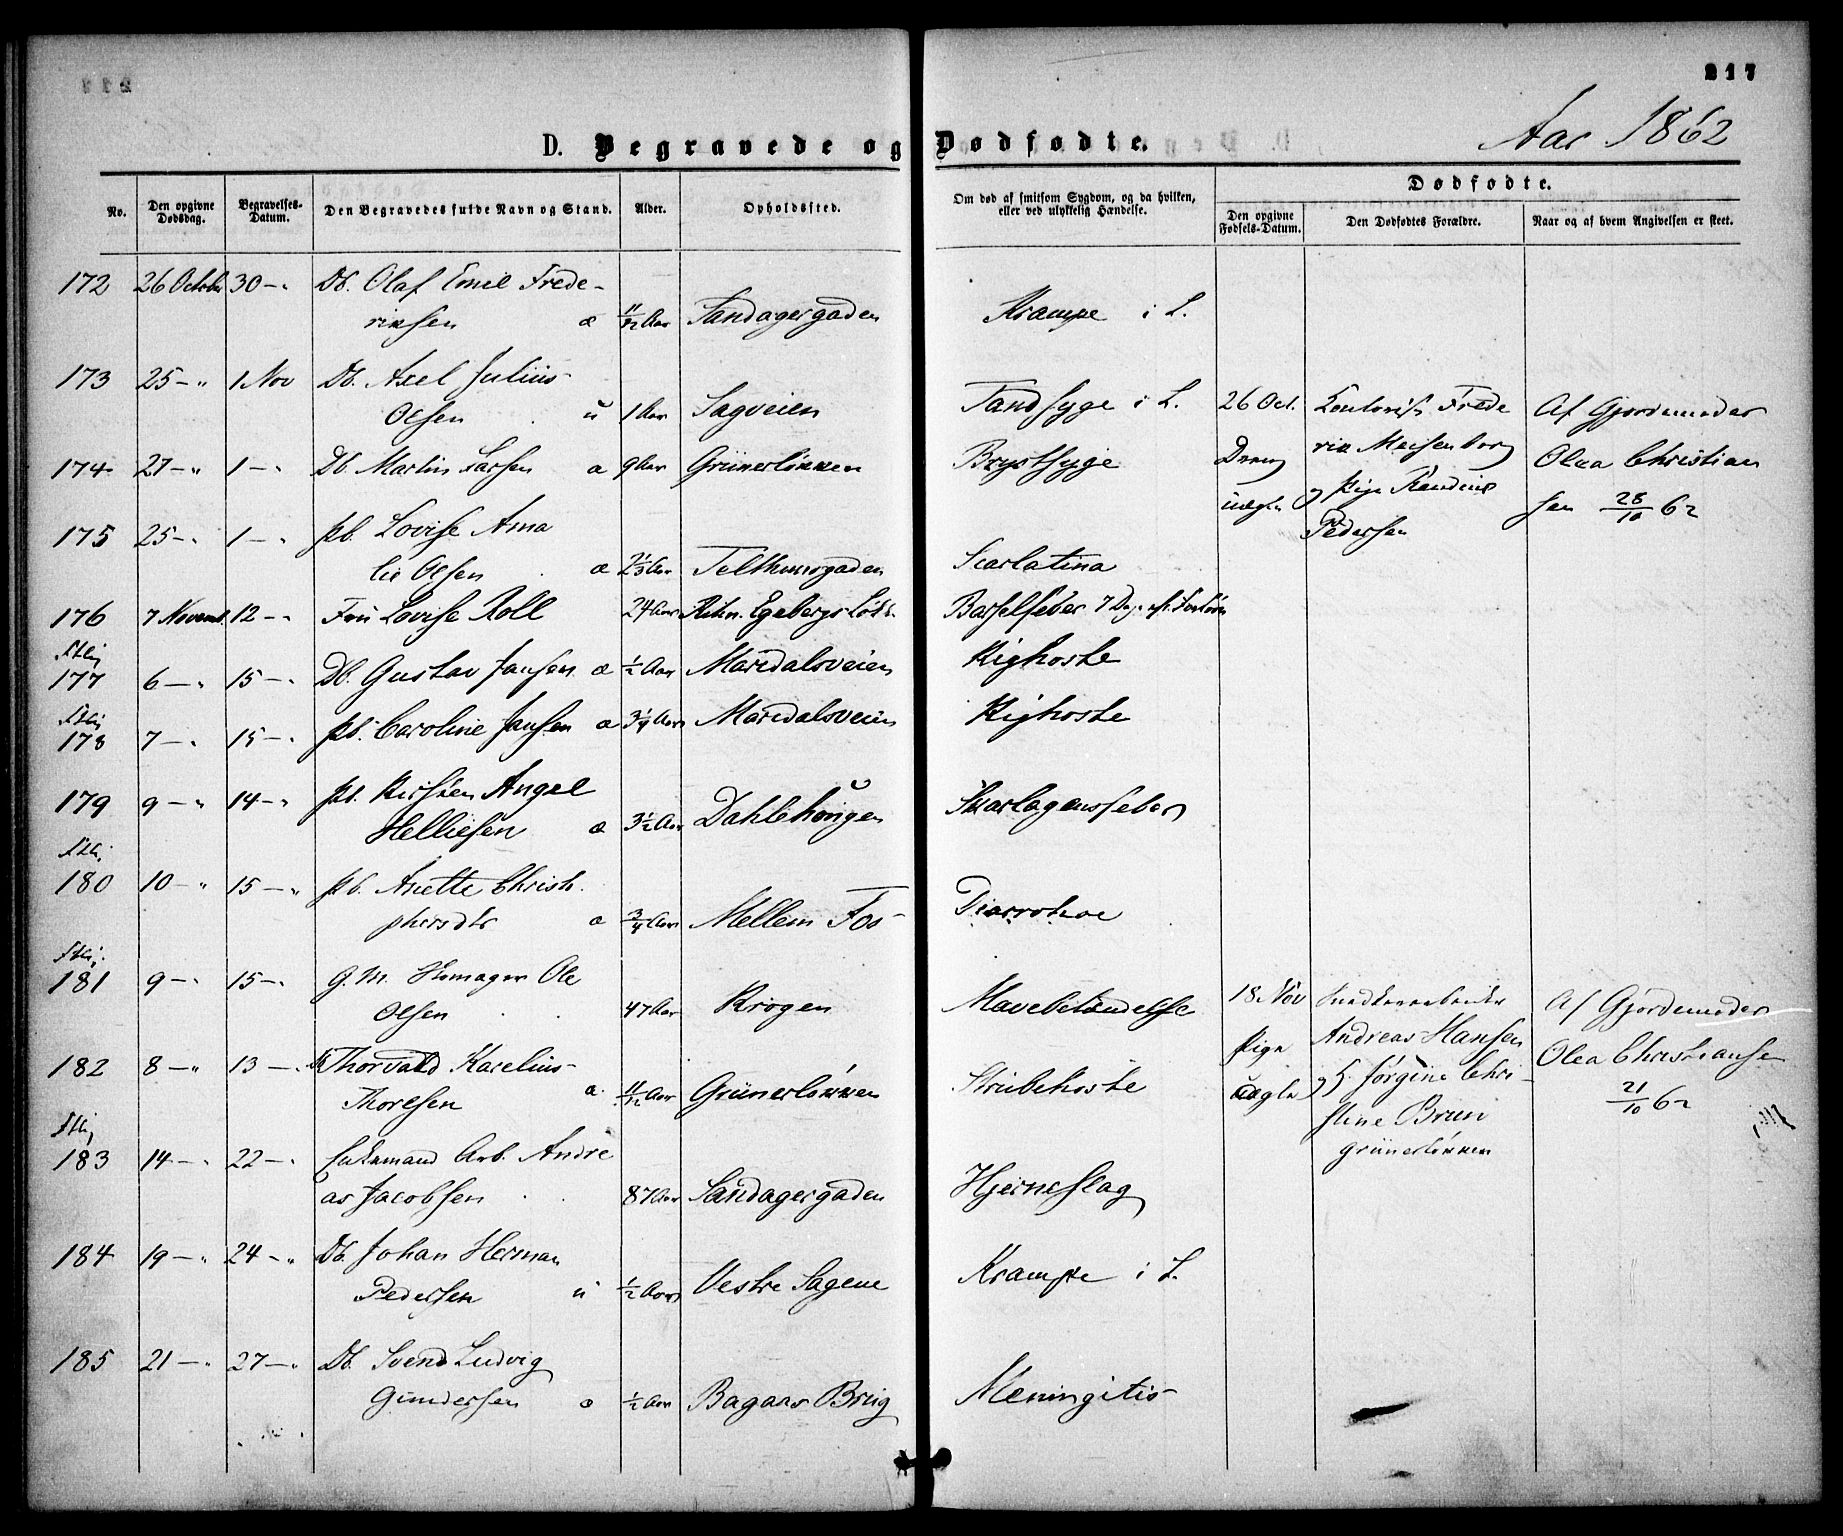 217
Aar 1862
D. Begravede og Dødfødte.
No.
Den opgivne Dødsdag.
Begravelses-Datum.
Den Begravedes fulde Navn og Stand.
Alder.
Opholdssted.
Om død af smitsom Sygdom, og da hvilken, eller ved ulykkelig Hændelse.
Dødfødte.
Den opgivne Fødsels-Datum.
Den Dødfødtes Forældre.
Naar og af hvem Angivelsen er skeet.
172 26 October 30 – " Db. Olaf Emil Frede-
riksen æ 11/12 Aar Sandagergaden Krampe i L.
173 25 – " 1 Nov Db. Axel Julius
Olsen u 1 Aar Sagveien Tandsyge i L. 26 Oct. Frede Af Gjordemoder
174 27 – " 1 – " Db. Martin Larsen æ 9 Aar Grünerløkken Brystsyge Dreng rik Meisenborg Olea Christian
uægte og Pige Randine sen 28/10 62
Pedersen
175 25 – " 1 – " Pb. Lovise Ama
lie Olsen æ 2 1/3 Aar Telthusgaden Scarlatina
176 7 Novemb. 12 – " Fru Lovise Roll 24 Aar Egebergs Løkk. Barselfeber 7 Dage eft. Forløsn
177 6 – " 15 – " Db. Gustav Jansen æ 1/2 Aar Maridalsveien Kighoste
178 7 – " 15 – " Pb. Caroline Jansen æ 3 1/4 Aar Maridalsveien Kighoste
179 9 – " 14 – " Pb. Kirsten Angel
Helliesen æ 3 1/2 Aar Dahlehougen Skarlagensfeber
180 10 – " 15 – " Pb. Anette Christo
phersdtr æ 3/4 Aar Mellem Fos Diarrohoe
181 9 – " 15 – " G. M. Skomager Ole
Olsen 47 Aar Krogen Mavebetændelse 18 Nov Snedkerarbeider Af Gjordemoder
182 8 – " 13 – " Db Thorvald Karelius Pige Andreas Hansen Olea Christiansen
Thoresen æ 11/12 Aar Grünerløkken Strubehoste uægte og Jørgine Chri-
21/10 62
stine Brun
Grünerløkken
183 14 – " 22 – " Enkemand Arb. Andre
as Jacobsen 87 Aar Sandagergaden Hjerneslag
184 19 – " 24 – " Db. Johan Herman
Pedersen u 1/2 Aar Vestre Sagene Krampe i L.
185 21 – " 27 – " Db. Svend Ludvig
Gundersen æ 1/2 Aar Bagaas Brug Meningitis